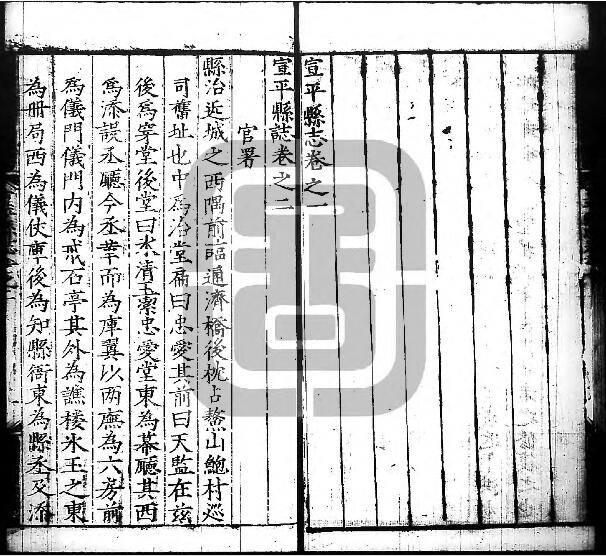 宣平縣志卷之一
宣平縣誌卷之二
官署
縣治近城之西隅前臨通濟橋後枕占鰲山鮑村巡
司舊址也中爲治堂扁曰忠愛其前曰天監在兹
後爲穿堂後堂曰氷清玉潔忠愛堂東為幕廳其西
爲添設丞廳今丞革而為庫翼以两廡為六房前
爲儀門儀門内為戒石亭其外為譙楼氷玉之東
為册局西為儀仗庫後為知縣衙東為縣丞及添